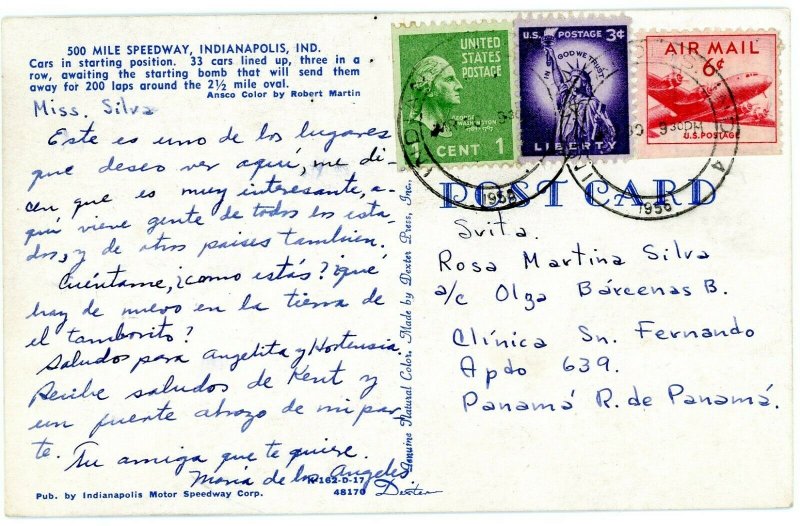 500 MILE SPEEDWAY, INDIANAPOLIS, IND.
Cars in starting position. 33 cars lined up, three in a
row, awaiting the starting bomb that will send them
away for 200 laps around the 2½ mile oval.
Ansco Color by Robert Martin
Miss. Silva
Este es uno de los lugares
que deseo ver aquí, me di-
cen que es muy interesante, a-
quí viene gente de todos los esta-
dos, y de otros paises tambien.
Cuéntame, ¿como estás? ¿qué
hay de nuevo en la tierra de
el tamborito?
Saludos para Angelita y Hortensia.
Recibe saludos de Kent y
un fuerte abrazo de mi par-
te.
Tu amiga que te quiere.
Maria de los Angeles
K-162-D-17
48170
Dexter
Pub. by Indianapolis Motor Speedway Corp.
Genuine Natural Color. Made by Dexter Press, Inc.,
UNITED
STATES
POSTAGE
GEORGE
WASHINGTON
1 CENT 1
U.S. POSTAGE 3¢
IN GOD WE TRUST
LIBERTY
AIR MAIL
6¢
U.S. POSTAGE
930PM
1956
1956
POST CARD
Svita.
Rosa Martina Silva
a/c Olga Bárcenas B.
Clínica Sn. Fernando
Apdo 639.
Panamá R. de Panamá.